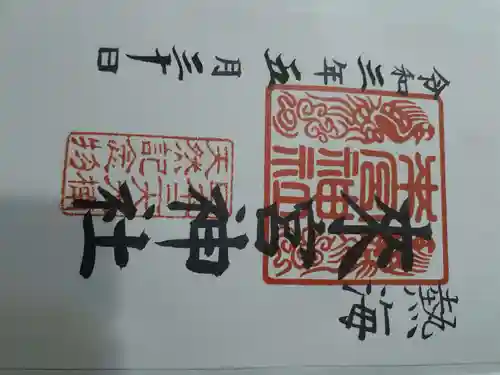 熱海
来宮神社
令和三年五月三十日
來宮神社
天然記念物